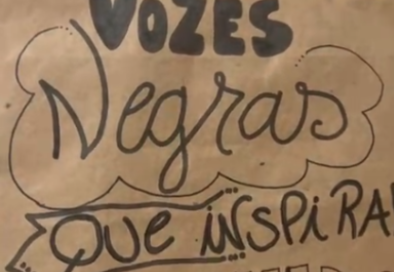 VOZES
Negras
QUE INSPIRA